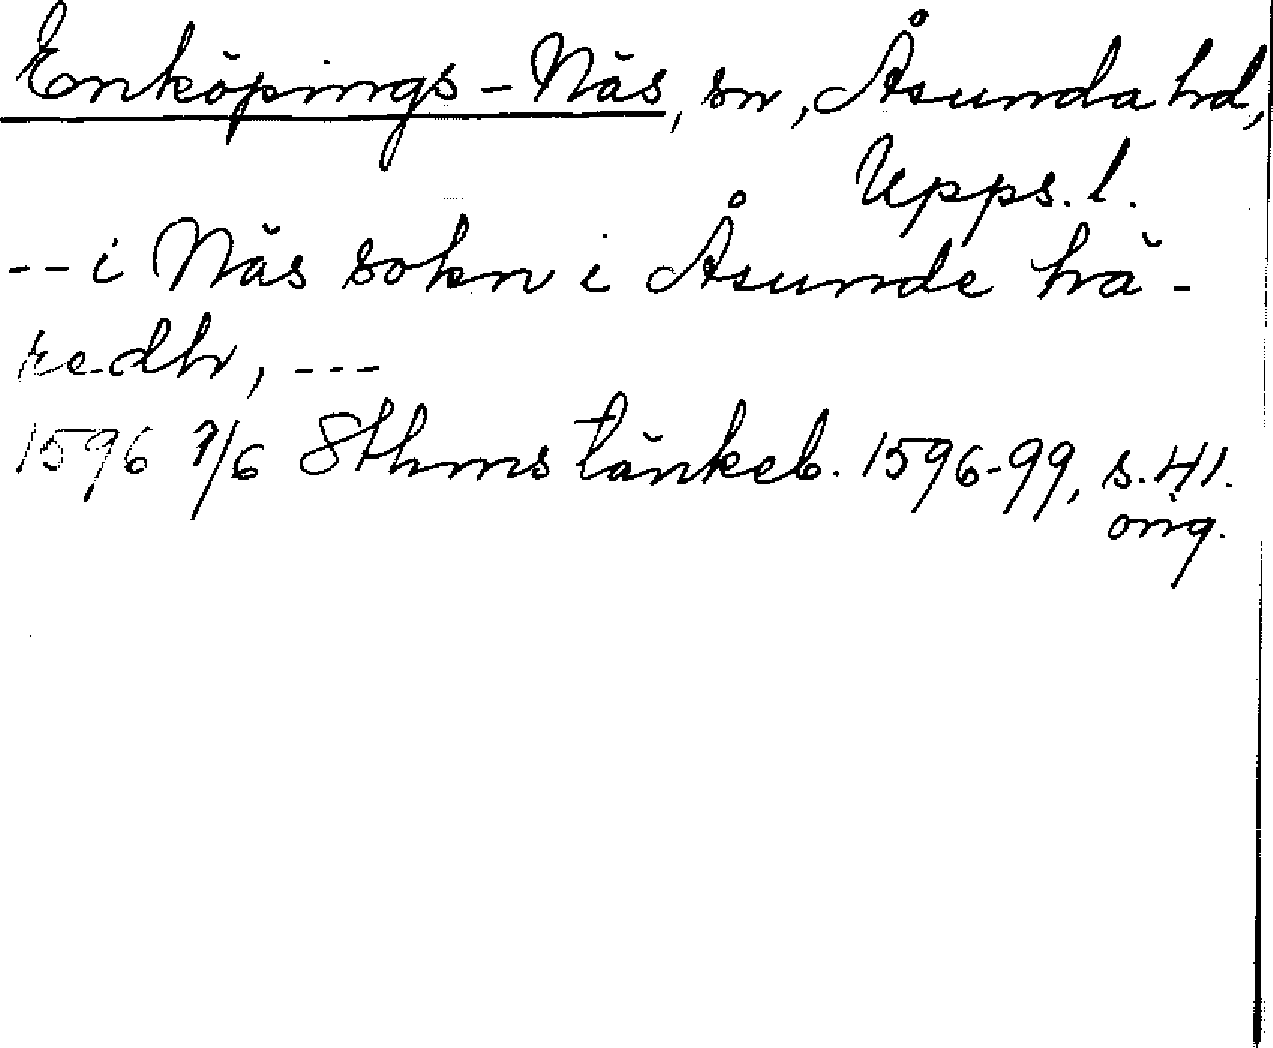 Enköpings-Näs, sn, Åsunda hd,
Upps. l.
-- i Näs sokn i Åsunde hä-
redh, ---
1596 7/6 Sthms tänkeb. 1596-99, s. 41.
orig.